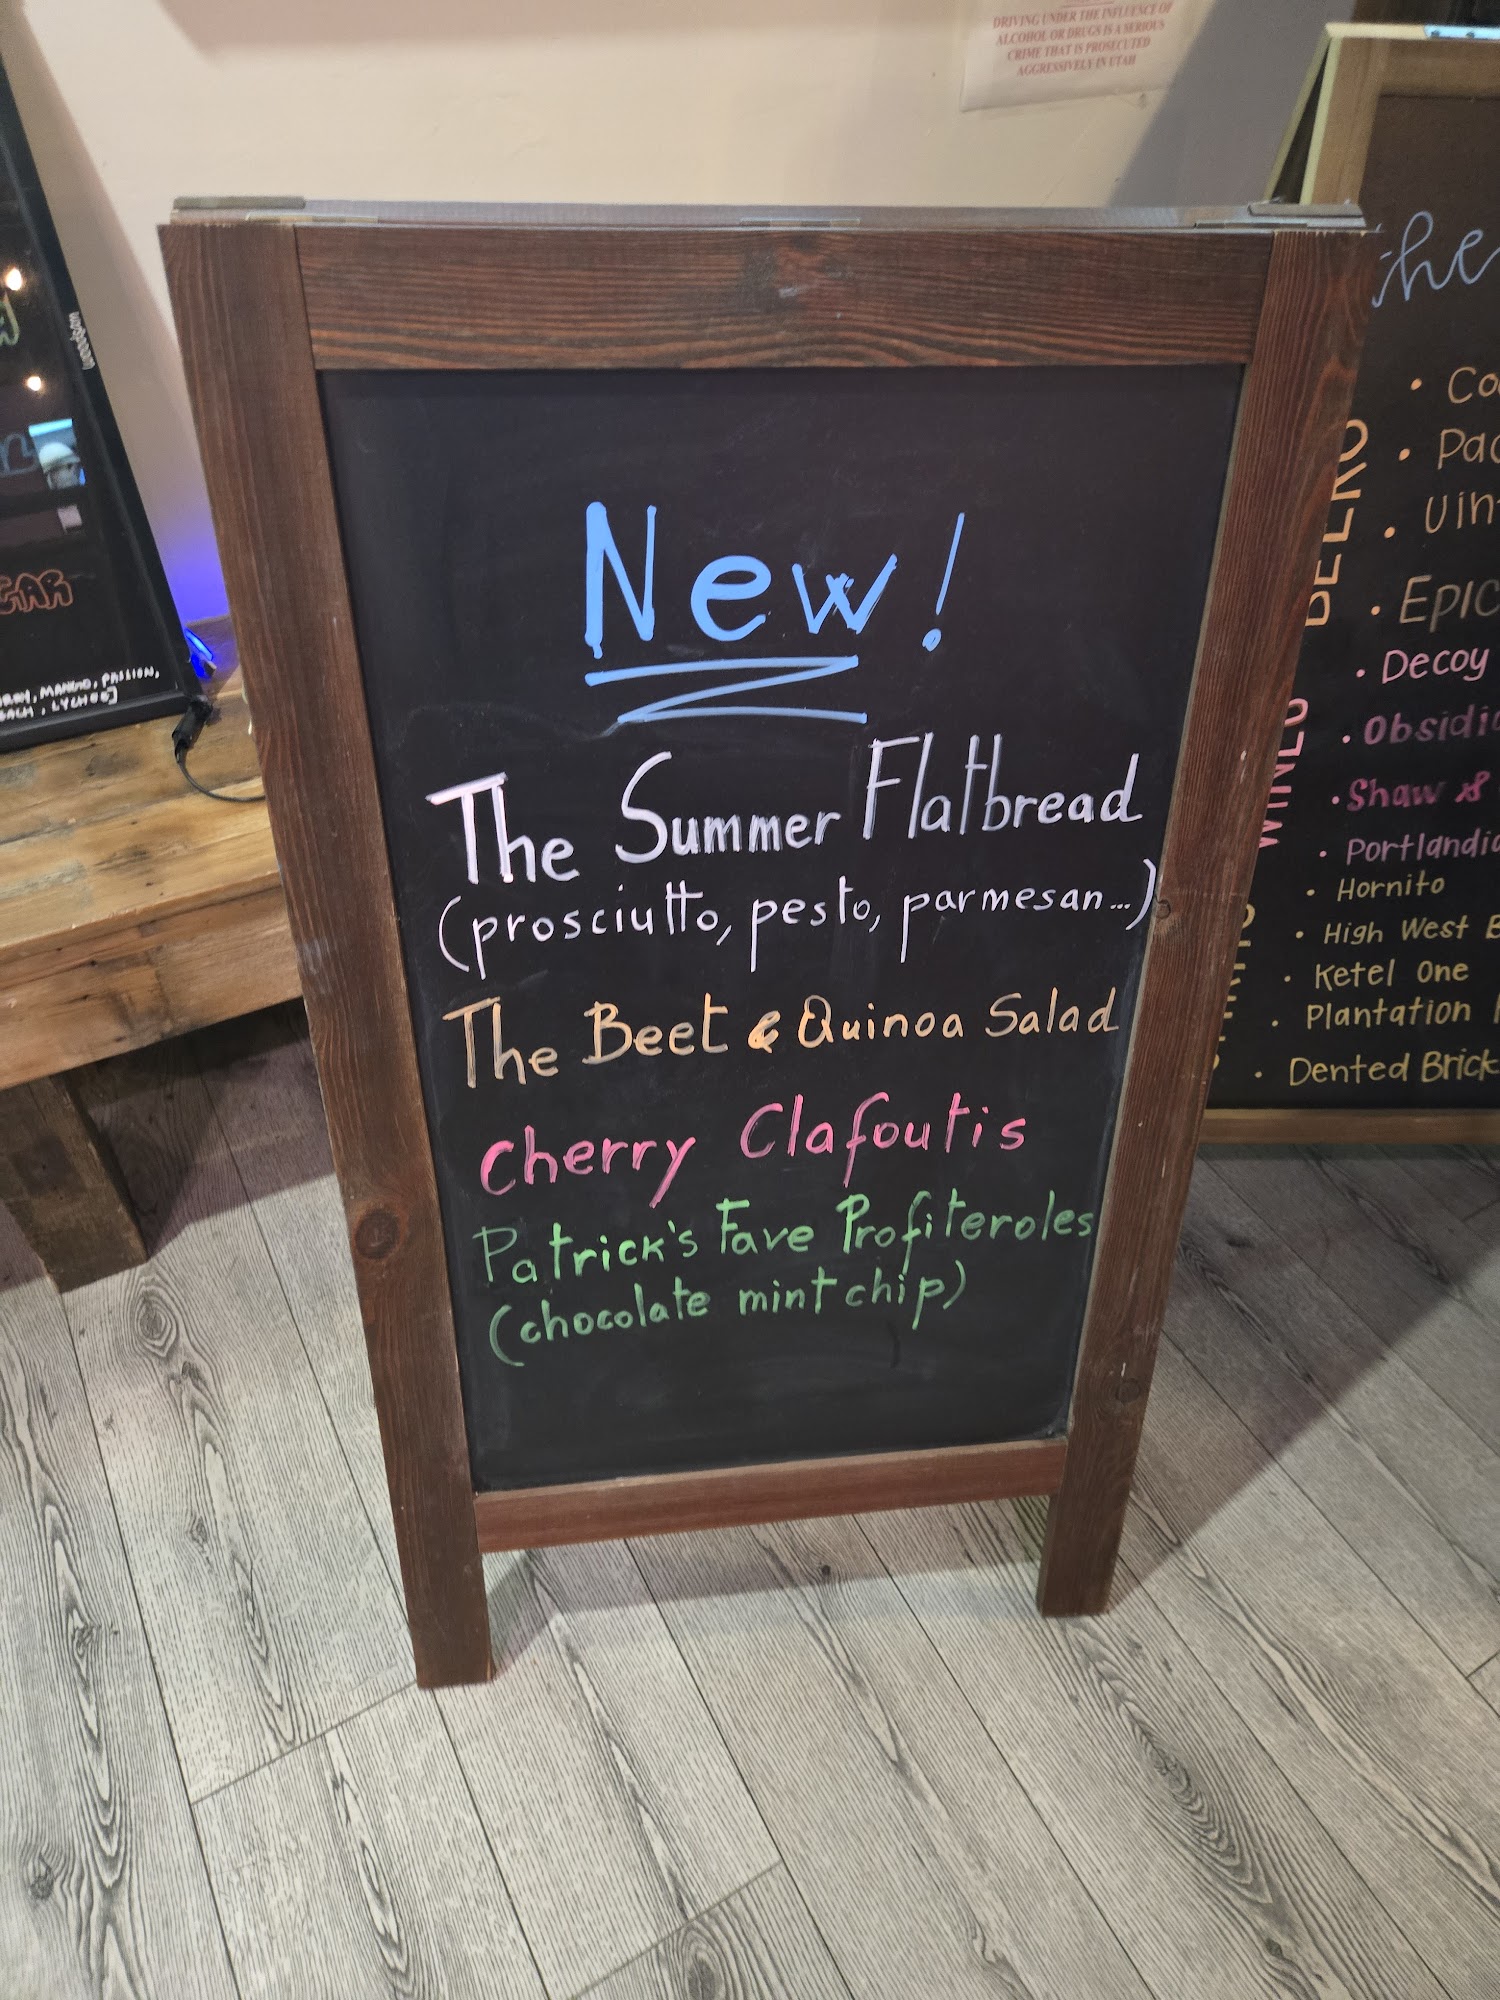 DRIVING UNDER THE INFLUENCE OF
ALCOHOL OR DRUGS IS A SERIOUS
CRIME THAT IS PROSECUTED
AGGRESSIVELY IN UTAH
New!
The Summer Flatbread
(prosciutto, pesto, parmesan...)
The Beet & Quinoa Salad
Cherry Clafoutis
Patrick's Fave Profiteroles
(chocolate mint chip)
MANGO, PASSION,
LYCHEE]
the
EPIC
Decoy
Shaw &
Hornito
High West
Ketel One
Plantation
Dented Brick